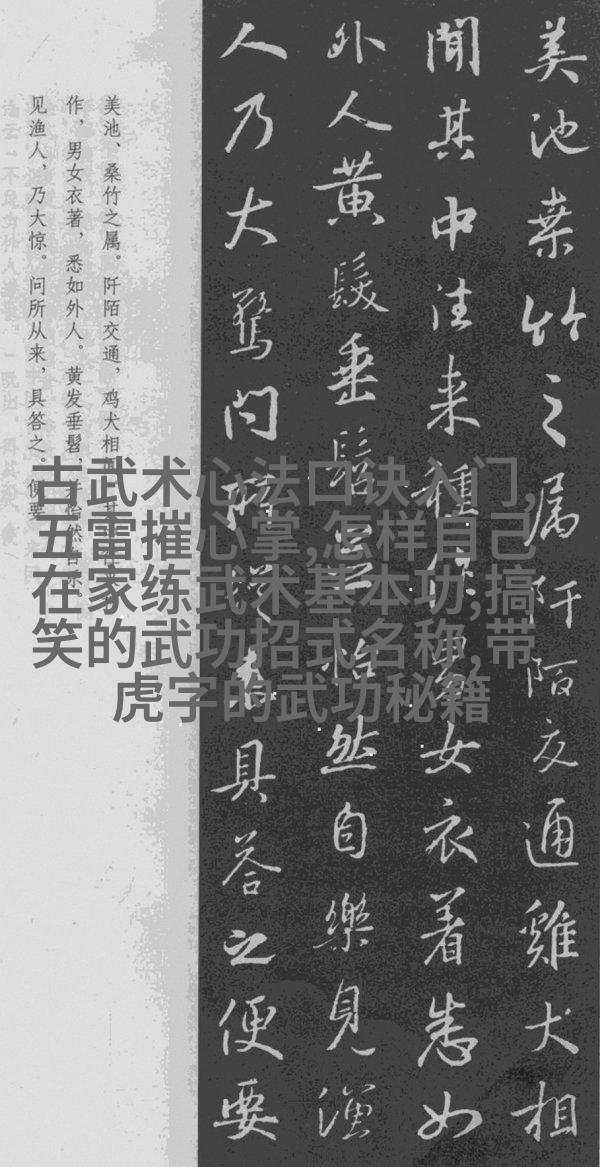 美池桒竹之属阡陌交通雞犬相
聞其中往来種作男女衣着悉如
外人黄髮垂髫並怡然自樂見漁
人乃大驚问所從来具答之便要
美池、桑竹之属。阡陌交通，鸡犬相
作，男女衣著，悉如外人。黄发垂髫，并怡然自乐
见渔人，乃大惊。问所从来，具答之。便要
古武术心法口诀入门,
五雷摧心掌,怎样自己
在家练武术基本功,搞
笑的武功招式名称,带
虎字的武功秘籍